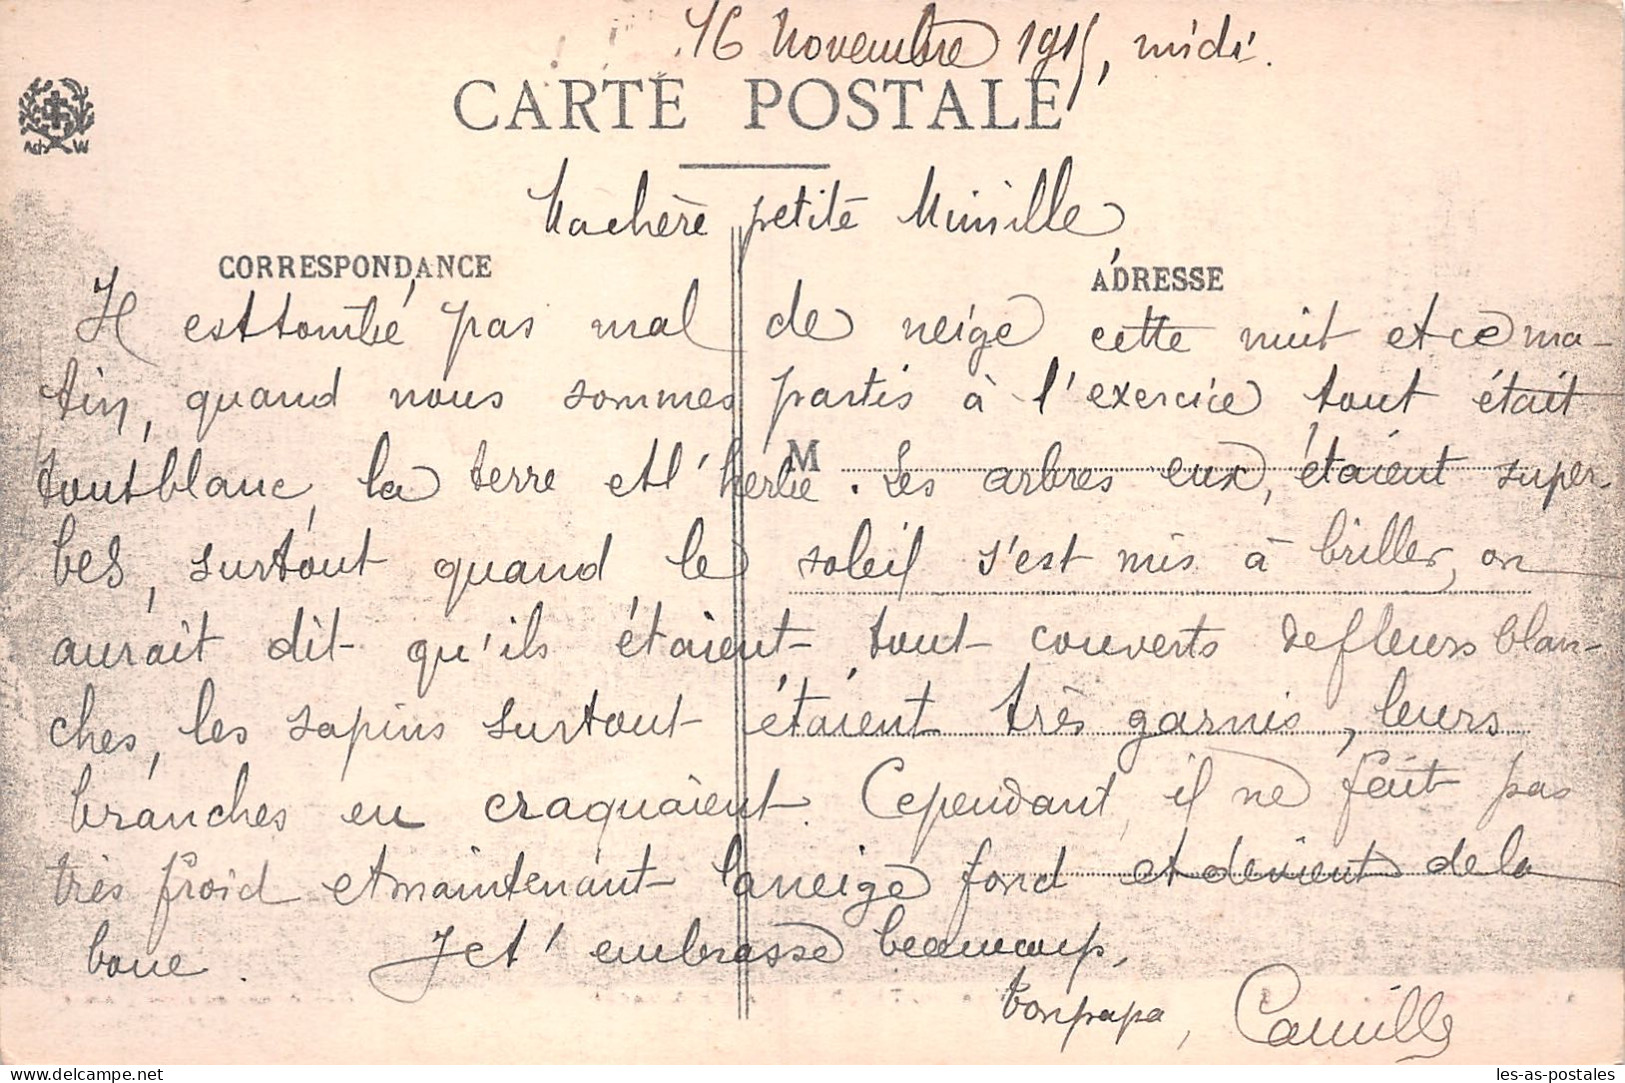 16 Novembre 1915, midi.
CARTE POSTALE
Ma chère petite Mimille
CORRESPONDANCE
ADRESSE
Il est tombé pas mal de neige cette nuit et ce ma-
tin, quand nous sommes partis à l'exercice tout était
tout blanc, la terre et l'herbe. Les arbres eux, étaient super-
M
bes, surtout quand le soleil s'est mis à briller, on
aurait dit qu'ils étaient tout couverts de fleurs blan-
ches, les sapins surtout étaient très garnis, leurs
branches en craquaient. Cependant, il ne fait pas
très froid et maintenant la neige fond et devient de la
boue. Je t'embrasse beaucoup,
ton papa, Camille
Ad W
les-as-postales
delcampe.net